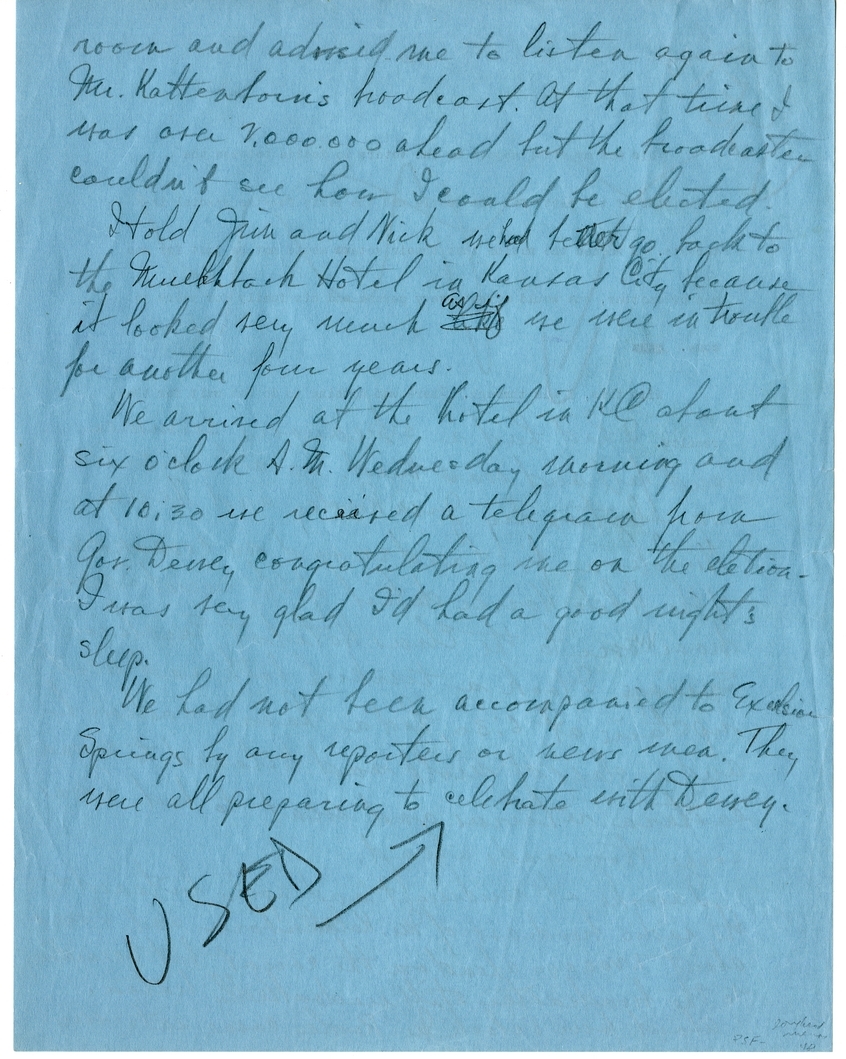 room and advised me to listen again to
Mr. Kaltenborn's broadcast. At that time I
was over 2,000.000 ahead but the broadcaster
couldn't see how I could be elected.
I told Jim and Nick we had better go back to
the Muehlbach Hotel in Kansas City because
it looked very much as if we were in trouble
for another four years.
We arrived at the Hotel in KC about
six o'clock A.M. Wednesday morning and
at 10:30 we received a telegram from
Gov. Dewey congratulating me on the election.
I was very glad I'd had a good night's
sleep.
We had not been accompanied to Excelsior
Springs by any reporters or news men. They
were all preparing to celebrate with Dewey.
USED
PSF-